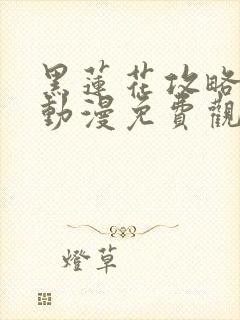 黑蓮花攻略
動漫免費觀
燈草